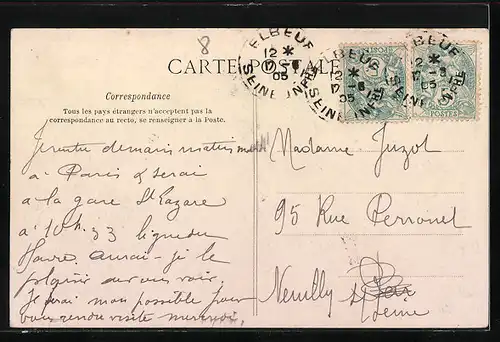 8
ELBEUF
12 *
17 -6
05
SEINE INFRE
ELBEUF
12 *
17 -6
05
SEINE INFRE
ELBEUF
12 *
17 -6
05
SEINE INFRE
CARTE POSTALE
POSTES
Correspondance
Tous les pays étrangers n'acceptent pas la
correspondance au recto, se renseigner à la Poste.
Je rentre demain matin
à Paris & serai
à la gare St Lazare
à 10h.33 ligne du
Havre. aurai-je le
plaisir de vous voir.
Je ferai mon possible pour
vous rendre visite mercredi
Madame Juzot
95 Rue Perronet
Neuilly s/
Seine